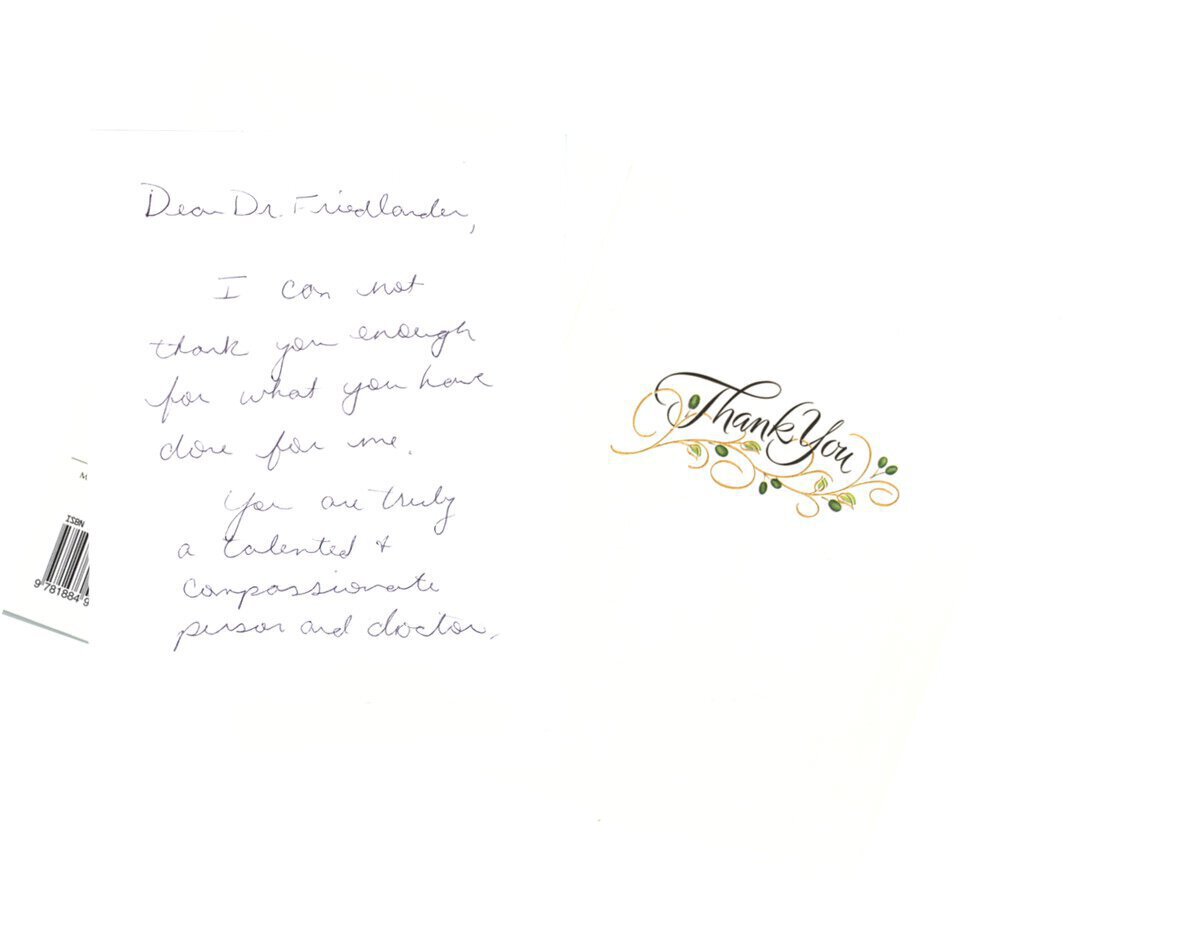 Dear Dr. Friedlander,
I can not
thank you enough
for what you have
done for me.
You are truly
a talented &
compassionate
person and doctor.
Thank You
M
ISBN
9 781884 9